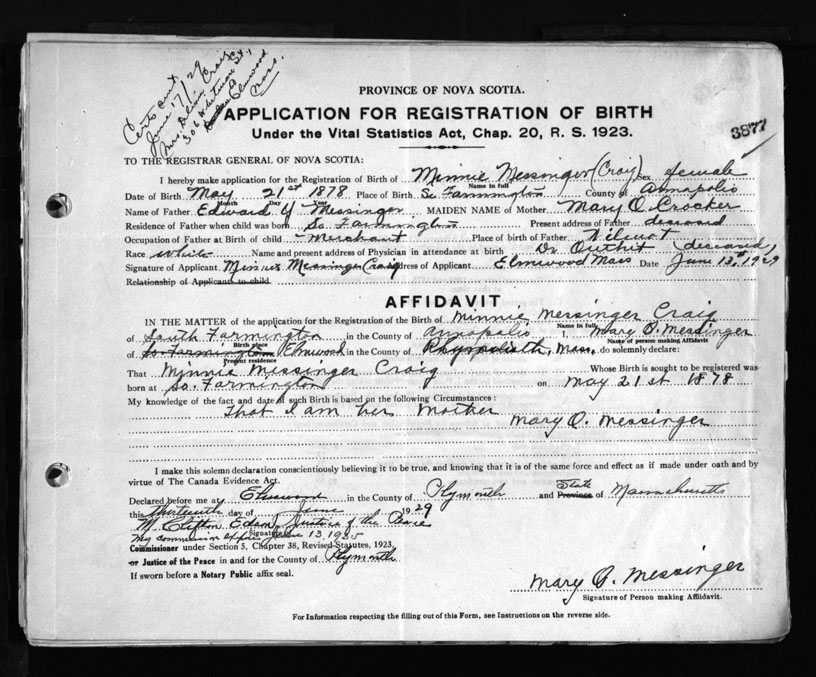 Certs out
June 17/29
Mrs. Craig
306 St.,
Elmwood
Mass.
PROVINCE OF NOVA SCOTIA.
APPLICATION FOR REGISTRATION OF BIRTH
Under the Vital Statistics Act, Chap. 20, R. S. 1923.
3877
TO THE REGISTRAR GENERAL OF NOVA SCOTIA:
I hereby make application for the Registration of Birth of Minnie Messinger (Craig) Sex female
Name in full
Date of Birth May 21st 1878 Place of Birth So. Farmington County of Annapolis
Month Day Year
Name of Father Edward Y Messinger MAIDEN NAME of Mother Mary O. Crocker
Residence of Father when child was born So. Farmington Present address of Father deceased
Occupation of Father at Birth of child Merchant Place of birth of Father Wilmot
Race White Name and present address of Physician in attendance at birth Dr. Outhit (deceased)
Signature of Applicant Minnie Messinger Craig Address of Applicant Elmwood Mass Date June 13th, 1929
Relationship of Applicant to child
AFFIDAVIT
IN THE MATTER of the application for the Registration of the Birth of Minnie Messinger Craig
Name in full
of South Farmington in the County of Annapolis I, Mary O. Messinger
Birth place Name of person making Affidavit
of So. Farmington Elmwood in the County of Plymouth, Mass. do solemnly declare:
Present residence
That Minnie Messinger Craig Whose Birth is sought to be registered was
born at So. Farmington on May 21st 1878
My knowledge of the fact and date of such Birth is based on the following Circumstances:
That I am her Mother
Mary O. Messinger
I make this solemn declaration conscientiously believing it to be true, and knowing that it is of the same force and effect as if made under oath and by
virtue of The Canada Evidence Act.
State
Declared before me at Elmwood in the County of Plymouth and Province of Massachusetts
this thirteenth day of June 1929
M. Clifton Edson, Justice of the Peace
Signature
My commission expires June 13, 1935
Commissioner under Section 5, Chapter 38, Revised Statutes, 1923.
or Justice of the Peace in and for the County of Plymouth
If sworn before a Notary Public affix seal.
Mary O. Messinger
Signature of Person making Affidavit.
For Information respecting the filling out of this Form, see Instructions on the reverse side.